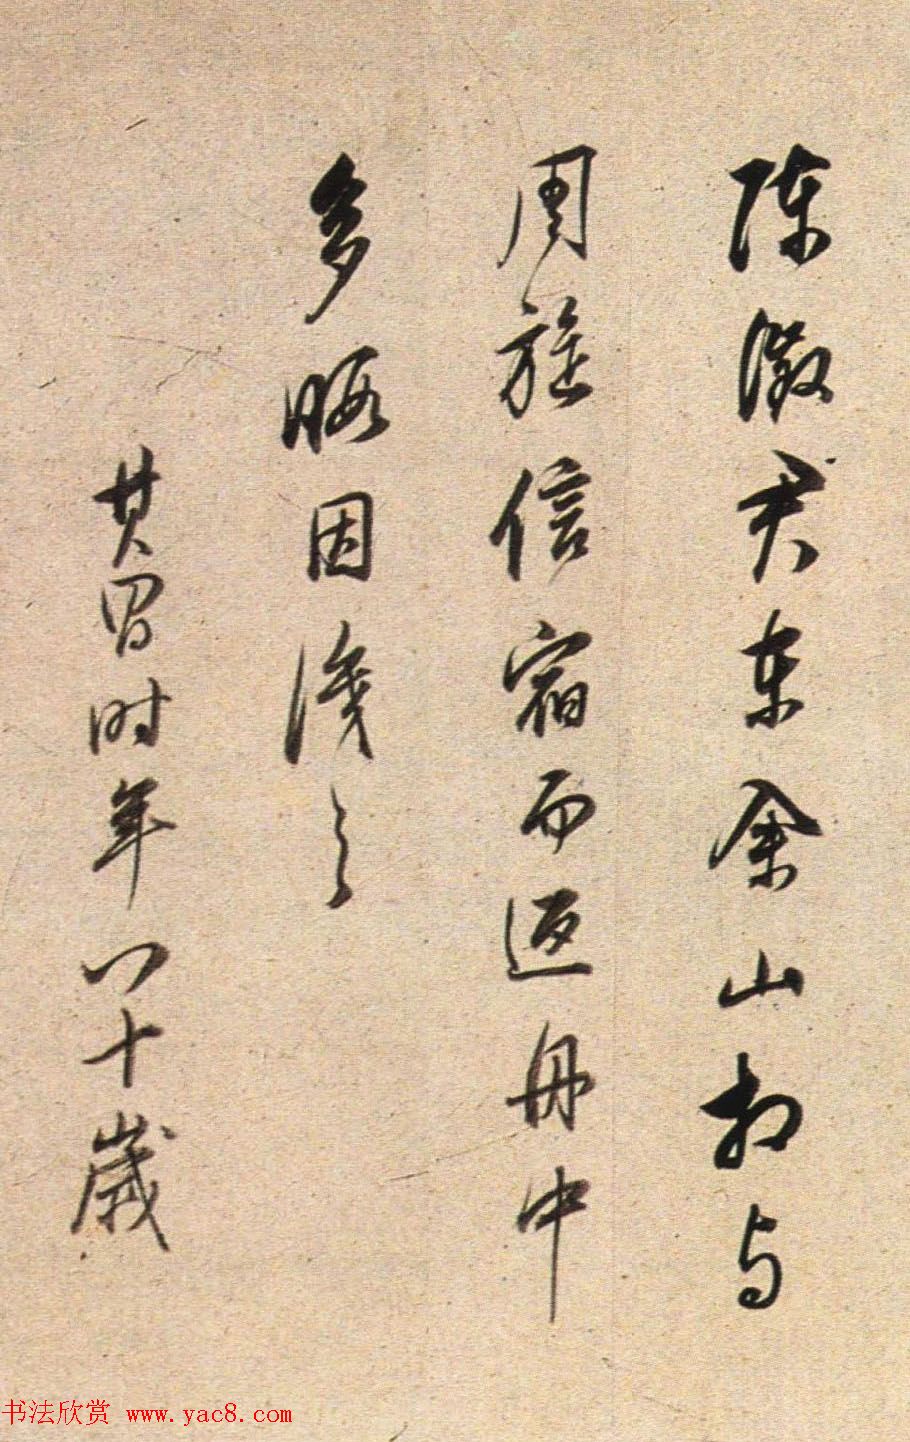 陳徵君東佘山相与
周旋信宿而返舟中
多暇因識之
其昌時年八十歲
书法欣赏 www.yac8.com